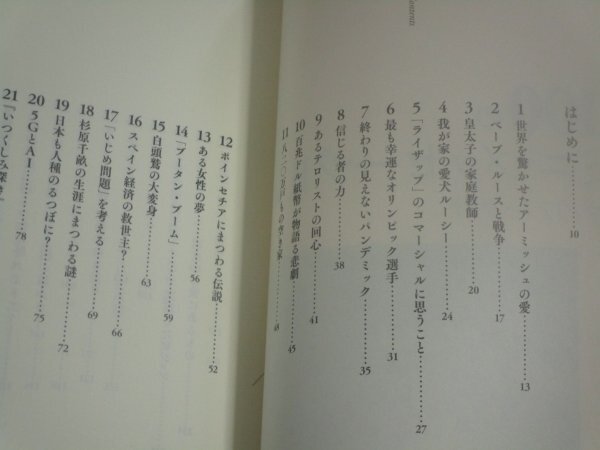 はじめに 10
1 世界を驚かせたアーミッシュの愛 13
2 ベーブ・ルースと戦争 17
3 皇太子の家庭教師 20
4 我が家の愛犬ルーシー 24
5 「ライザップ」のコマーシャルに思うこと 27
6 最も幸運なオリンピック選手 31
7 終わりの見えないパンデミック 35
8 信じる者の力 38
9 あるテロリストの回心 41
10 百兆ドル紙幣が物語る悲劇 45
11 の空き家 48
12 ポインセチアにまつわる伝説 52
13 ある女性の夢 56
14 「ブータン・ブーム」 59
15 白頭鷲の大変身 63
16 スペイン経済の救世主? 66
17 「いじめ問題」を考える 69
18 杉原千畝の生涯にまつわる謎 72
19 日本も人種のるつぼに? 75
20 5GとAI 78
21 「いつくしみ深き」